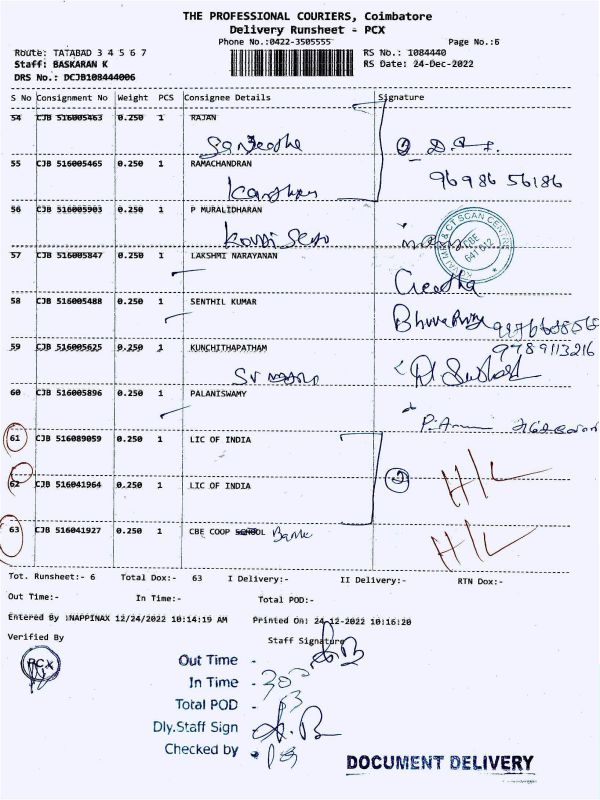 THE PROFESSIONAL COURIERS, Coimbatore
Delivery Runsheet - PCX
Phone No.:0422-3505555 Page No.:6
Route: TATABAD 3 4 5 6 7 RS No.: 1084440
Staff: BASKARAN K RS Date: 24-Dec-2022
DRS No.: DCJB108444006
S No Consignment No Weight PCS Consignee Details Signature
54 CJB 516005463 0.250 1 RAJAN
55 CJB 516005465 0.250 1 RAMACHANDRAN
96986 56186
56 CJB 516005903 0.250 1 P MURALIDHARAN
KOVAI MRI & CT SCAN CENTRE CBE 641 012
57 CJB 516005847 0.250 1 LAKSHMI NARAYANAN
58 CJB 516005488 0.250 1 SENTHIL KUMAR
59 CJB 516005625 0.250 1 KUNCHITHAPATHAM
9789113216
60 CJB 516005896 0.250 1 PALANISWAMY
61 CJB 516089059 0.250 1 LIC OF INDIA
62 CJB 516041964 0.250 1 LIC OF INDIA
2 H/L
63 CJB 516041927 0.250 1 CBE COOP SCHOOL Bank H/L
Tot. Runsheet:- 6 Total Dox:- 63 I Delivery:- II Delivery:- RTN Dox:-
Out Time:- In Time:- Total POD:-
Entered By :NAPPINAX 12/24/2022 10:14:19 AM Printed On: 24-12-2022 10:16:20
Verified By Staff Signature
PCX
Out Time -
In Time - 300
Total POD - 63
Dly.Staff Sign
Checked by -
DOCUMENT DELIVERY